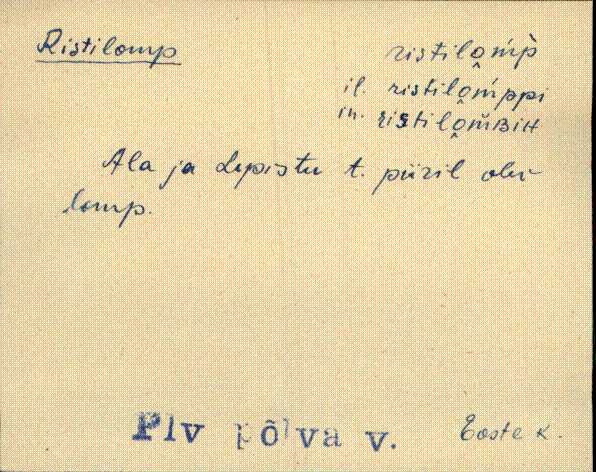 Ristilomp ristilo̭mp̀
il. ristilo̭mppi
in. ristilo̭mBiH
Ala ja Lepistu t. piiril olev
lomp.
Plv põlva v. Eoste k.